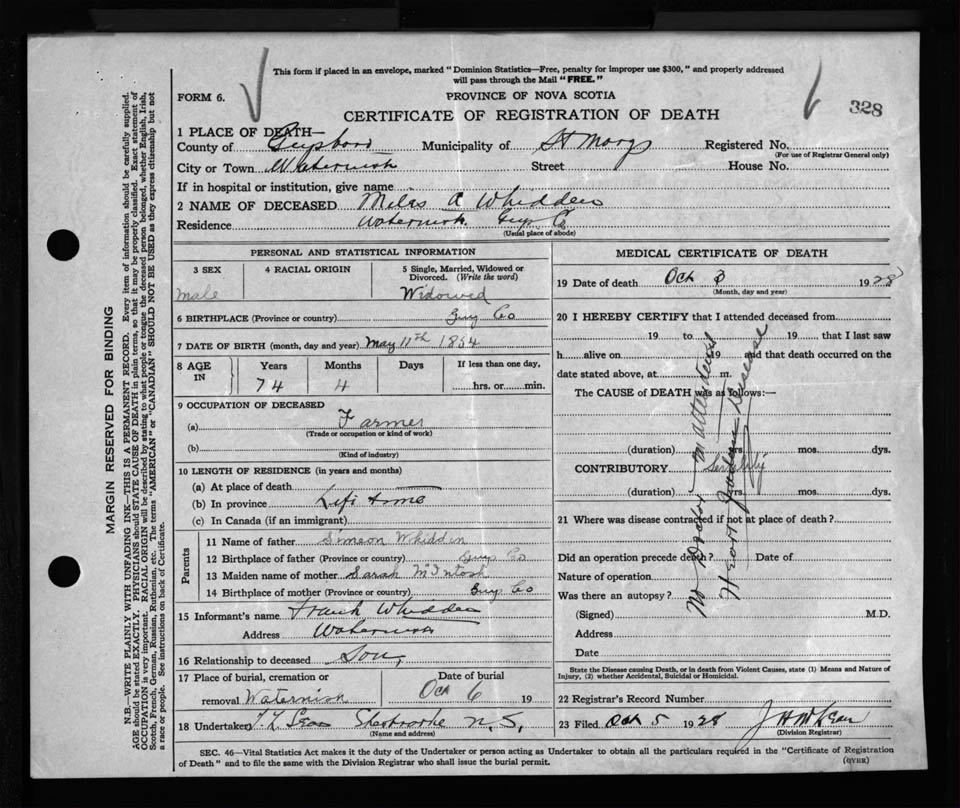 This form if placed in an envelope, marked " Dominion Statistics—Free, penalty for improper use $300, " and properly addressed
will pass through the Mail " FREE. "
FORM 6.
PROVINCE OF NOVA SCOTIA
328
CERTIFICATE OF REGISTRATION OF DEATH
1 PLACE OF DEATH—
County of Municipality of St Marys Registered No.
(For use of Registrar General only)
City or Town Waternish Street House No.
If in hospital or institution, give name
2 NAME OF DECEASED Miles A Whidden
Residence Waternish Guy Co
(Usual place of abode)
PERSONAL AND STATISTICAL INFORMATION
3 SEX 4 RACIAL ORIGIN 5 Single, Married, Widowed or
Divorced. (Write the word)
male Widowed
6 BIRTHPLACE (Province or country) Guy Co
7 DATE OF BIRTH (month, day and year) May 11th 1854
8 AGE IN Years Months Days If less than one day,
74 4 hrs. or min.
9 OCCUPATION OF DECEASED
(a) Farmer
(Trade or occupation or kind of work)
(b)
(Kind of industry)
10 LENGTH OF RESIDENCE (in years and months)
(a) At place of death
(b) In province Life time
(c) In Canada (if an immigrant)
Parents
11 Name of father Simeon Whidden
12 Birthplace of father (Province or country) Guy Co
13 Maiden name of mother Sarah McIntosh
14 Birthplace of mother (Province or country) Guy Co
15 Informant's name Frank Whidden
Address Waternish
16 Relationship to deceased Son
17 Place of burial, cremation or Date of burial
removal Waternish Oct 6 19
18 Undertaker N. S.
(Name and address)
MEDICAL CERTIFICATE OF DEATH
19 Date of death Oct 3 1928
(Month, day and year)
20 I HEREBY CERTIFY that I attended deceased from
19 to 19 that I last saw
h alive on 19 and that death occurred on the
date stated above, at m.
The CAUSE of DEATH was as follows:—
No Doctor in attendance
Heart Disease
(duration) yrs. mos. dys.
CONTRIBUTORY Senility
(duration) yrs. mos. dys.
21 Where was disease contracted if not at place of death ?
Did an operation precede death ? Date of
Nature of operation
Was there an autopsy ?
(Signed) M.D.
Address
Date
State the Disease causing Death, or in death from Violent Causes, state (1) Means and Nature of
Injury, (2) whether Accidental, Suicidal or Homicidal.
22 Registrar's Record Number
23 Filed Oct 5 1928
(Division Registrar)
SEC. 46—Vital Statistics Act makes it the duty of the Undertaker or person acting as Undertaker to obtain all the particulars required in the "Certificate of Registration
of Death " and to file the same with the Division Registrar who shall issue the burial permit.
(OVER)
MARGIN RESERVED FOR BINDING
N.B.—WRITE PLAINLY WITH UNFADING INK—THIS IS A PERMANENT RECORD. Every item of information should be carefully supplied.
AGE should be stated EXACTLY. PHYSICIANS should STATE CAUSE OF DEATH in plain terms, so that it may be properly classified. Exact statement of
OCCUPATION is very important. RACIAL ORIGIN will be described by stating to what people or tongue the deceased person belonged, whether English, Irish,
Scotch, French, German, Russian, Ruthenian, etc. The terms "AMERICAN" or "CANADIAN" SHOULD NOT BE USED as they express citizenship but not
a race or people. See instructions on back of Certificate.